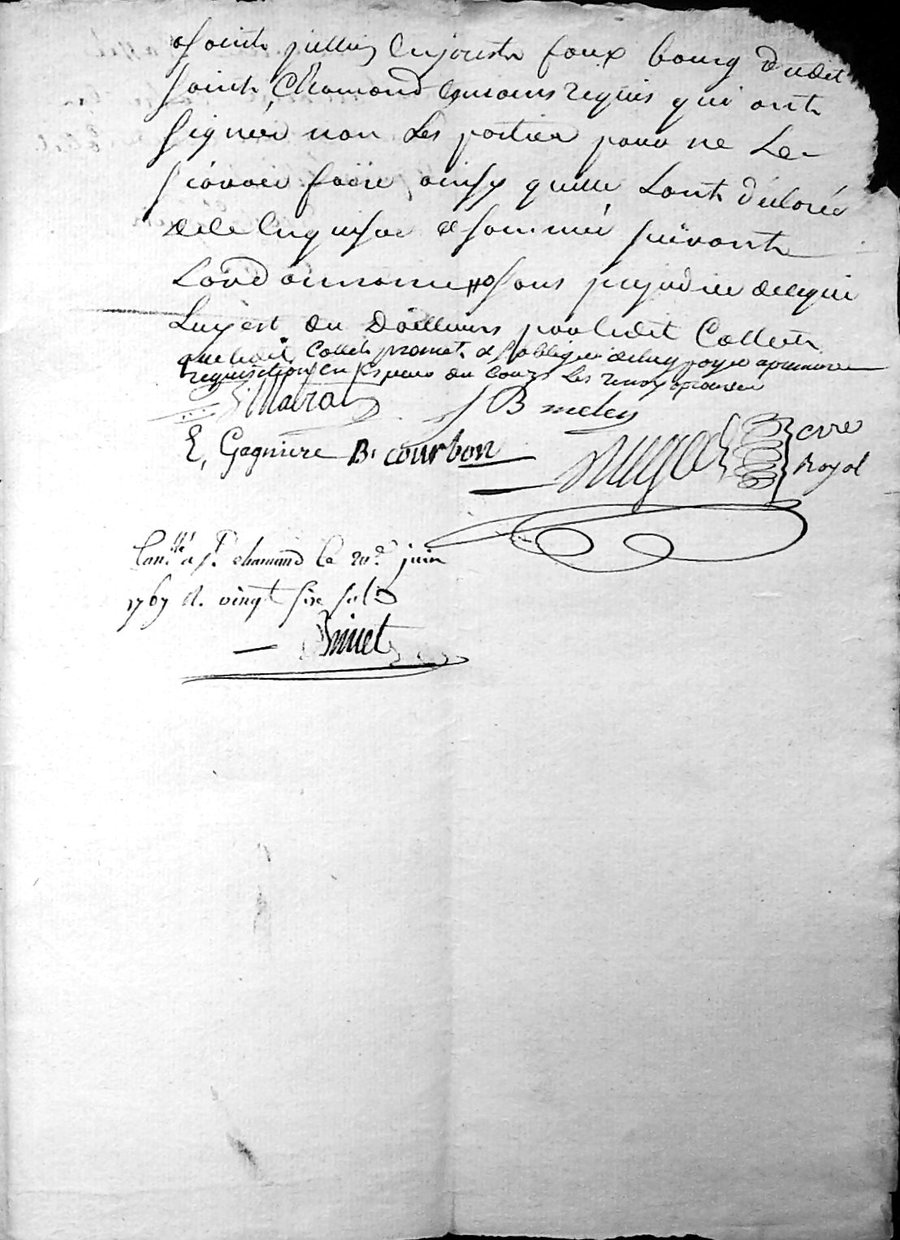 a saint jullien en jarest faux bourg dudit
saint Chamond temoins requis qui ont
signée non les partiee pour ne le
scavoir faire ainsy quelle lont déclarée
de ce enquise et sommée suivant
Lordonnance sans prejudice de ce qui
luy est du dailleurs par ledit Collet
que ledit Collet promet et soblige de luy payer a premiere
requisition en especes du cours les renvoy aprouvée
Matra
E, Gagniere B. courbon nore
Royal
Con.lle a st chamond le 20.e juin
1767 R. vingt six sols
Binet